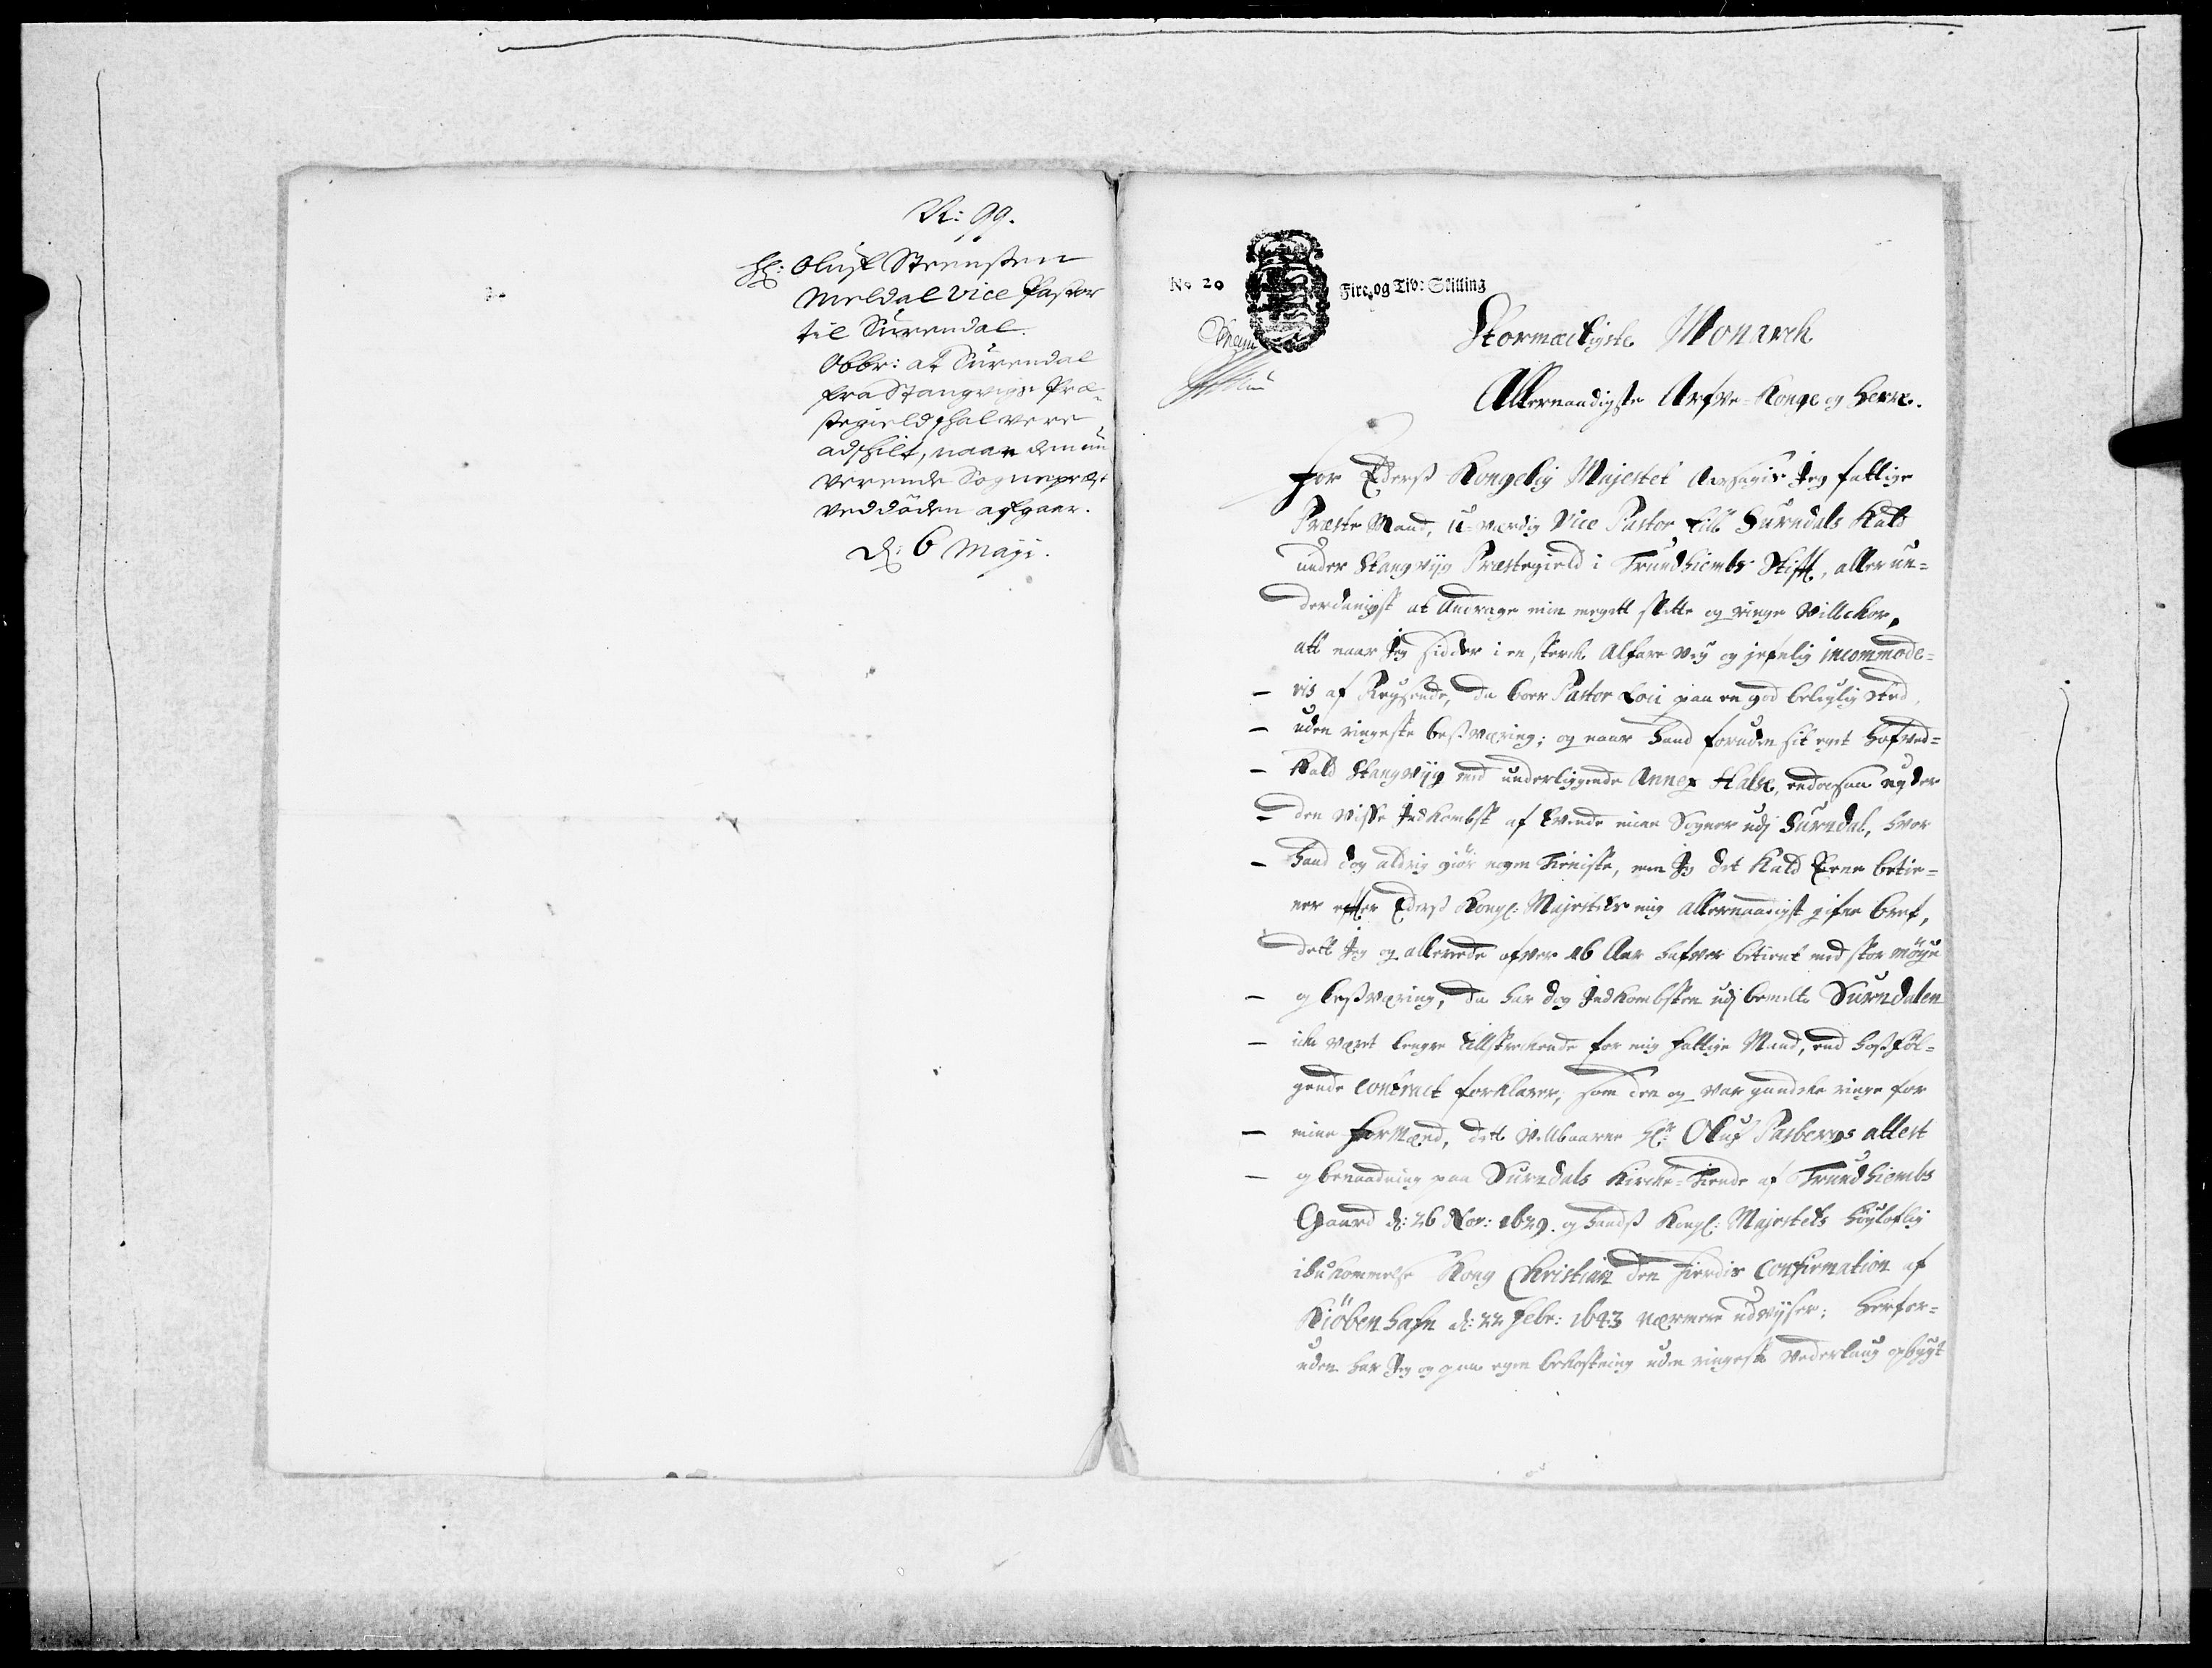 N: 99.
H: Oluf Steensøn
Meldal Vice Pastor
til Surendal.
Obbr: at Surendal
fra Stangvigs Præ-
stegield schal være
adschilt, naar den nu
værende Sognepræst
ved døden afgaar.
d: 6 Maji.
No 20
Fire og Tiv: Skilling
Stormæctigste Monarch
Allernaadigste Arfve-Konge og Herre.
For Ederß Kongelig Majestet Jeg fattige
Præste Mand, u-værdig Vice Pastor till Surndals Kald
under Stangvijg Præstegield i Trundhiembs Stift, allerun-
derdanigst at Andrage min megett slette og ringe Villckor,
att naar Jeg sidder i en sterck Alfare Vey og jefnlig incommode-
ris af Reysende, da boer Pastor Loci paa en god beleylig sted,
uden ringeste besværing; og naar hand foruden sit eget Hofved-
Kald Stangvijg med underliggende Annex Halse, endocsaa nyder
den visse Indkombst af tvende mine Sogner udj Surndal, hvor
hand dog aldrig giør nogen tieniste, men Jeg det Kald Eene betie-
ner efter Ederß Kongl: Majestets mig allernaadigst gifne bref,
dett Jeg og allerede ofver 16 Aar hafver betient med stor möye
og besværing, da har dog Indkombsten udj bemelte Surndalen
icke været lengre tillstreckende for mig fattige Mand, end hosföl-
gende contract forklarer, som den og var gandske ringe for
mine Formænd, dett Velbaarne Hr: Oluf Pasbergs attest
og benaadning paa Surndals Kircke-Tiende af Trundhiembs
Gaard d: 26 Nov: 1629. og Hands Kongl: Majestets höyloflig
ihukommelse Kong Christian den Fierdis Confirmation af
Kiöbenhafn d: 22 Febr: 1643 nærmere udvijser; herfor-
uden har Jeg og paa egen bekostning uden ringeste Vederlaug opbygt